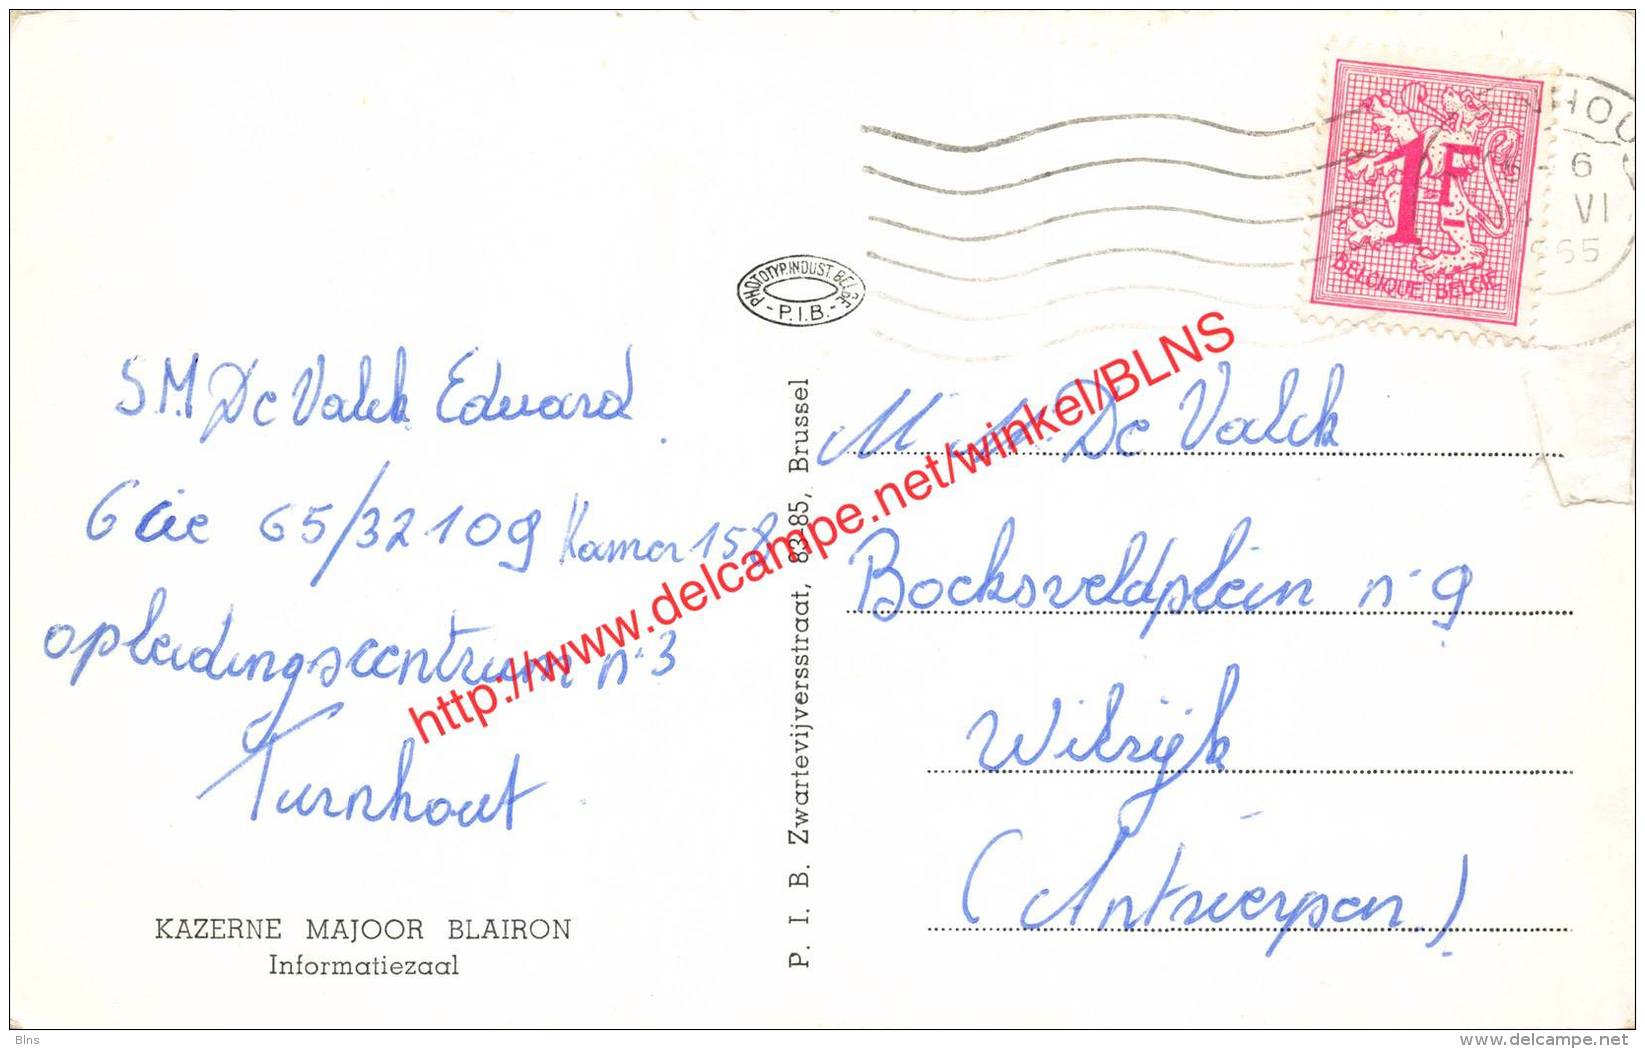 S.M De Valck Edward.
6 cie 65/32109 Kamer 158
opleidingscentrum n.3
Turnhout
KAZERNE MAJOOR BLAIRON
Informatiezaal
PHOTOTYP.INDUST.BELGE
- P.I.B. -
P. I. B. Zwartevijversstraat, 83-85, Brussel
NHOU
6
VI
1965
1F
BELGIQUE BELGIË
M De Valck
Bocksveldplein n. 9
Wilrijk
(Antwerpen.)
http://www.delcampe.net/winkel/BLNS
Blns
www.delcampe.net